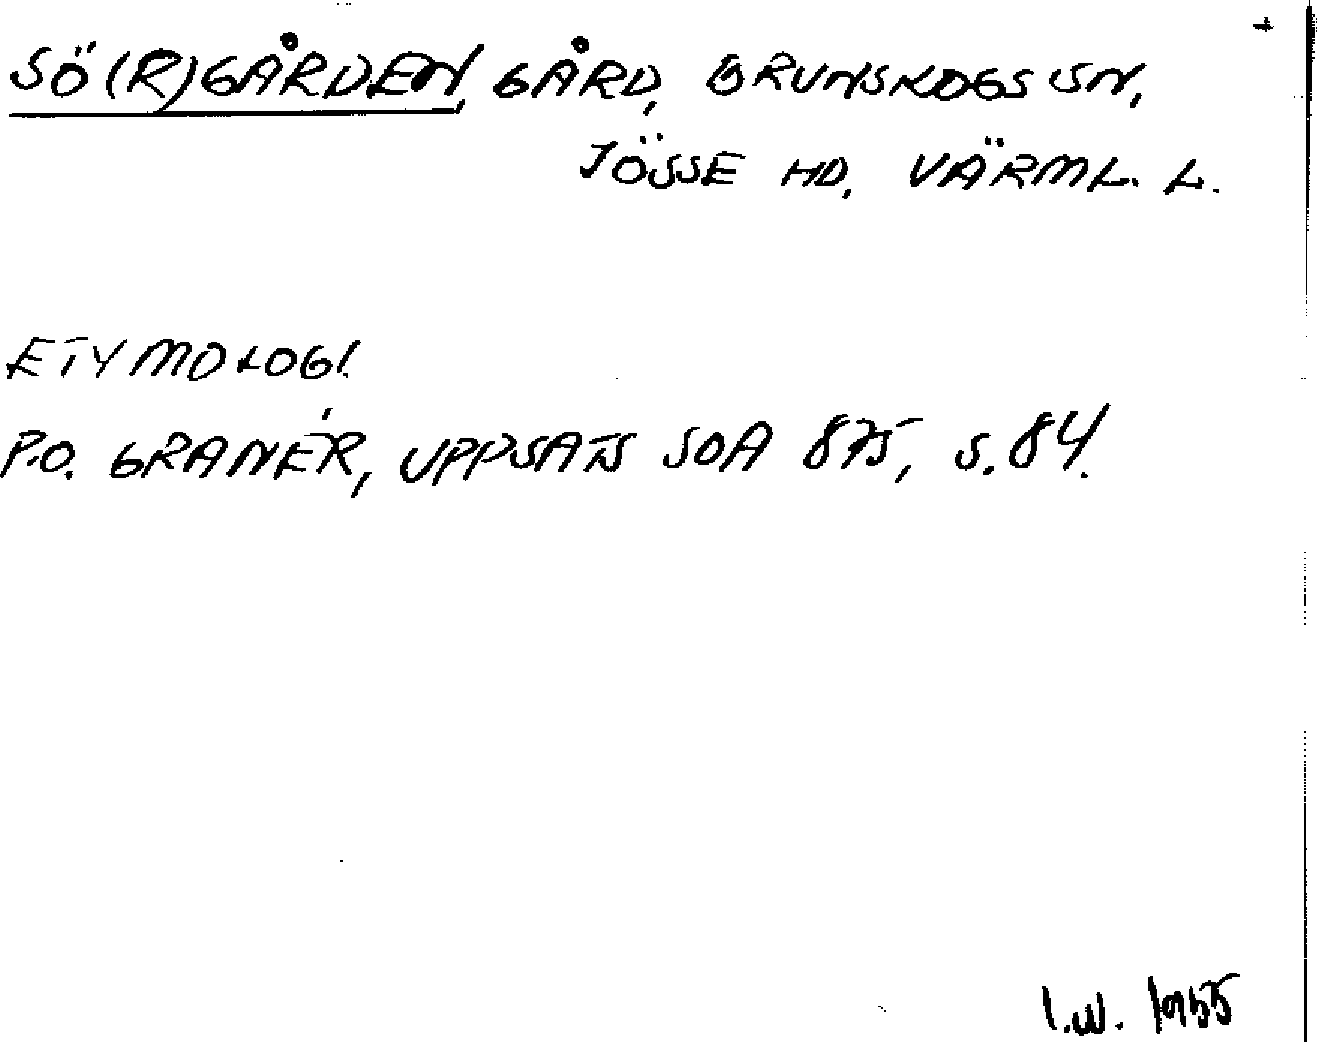 +
SÖ(R)GÅRDEN, GÅRD, BRUNSKOGS SN,
JÖSSE HD, VÄRML. L.
ETYMOLOGI.
P.O. GRANÉR, UPPSATS SOA 875, S. 84.
I.W. 1955